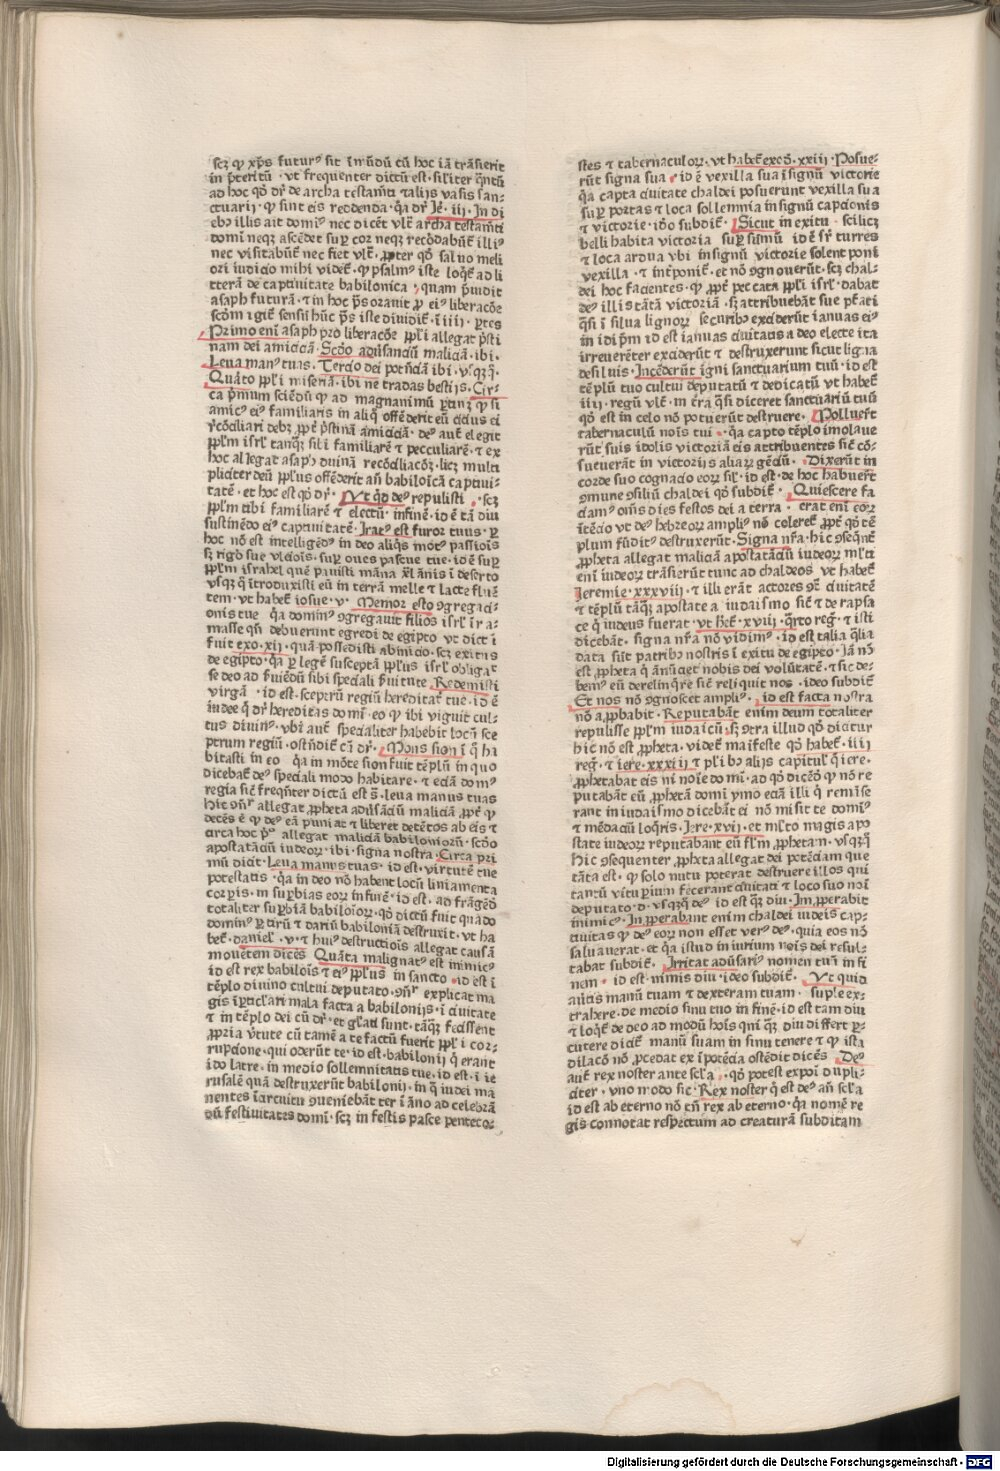 scꝫ ꝙ xp̄s futurꝰ sit in mūdū cū hoc iā trāsierit
in p̄teritū · vt frequenter dictū est · siƚiter q̄ntū
ad hoc qd̄ dr̄ de archa testam̄ti ⁊ alijs vasis san-
ctuarij · ꝙ sint eis reddenda · q̄a dr̄ Je᷑ · iij · In di
ebꝰ illis ait dominꝰ nec dicēt vƚt̄ archa testam̄ti
domī neqꝫ ascēdet suꝑ cor neqꝫ recōdabūt᷑ illiꝰ
nec visitabūt᷑ nec fiet vƚt̄ · ꝓpter qd̄ saluo meli
ori iudicio mihi videt᷑ · ꝙ psalmꝰ iste loqt᷑ ad li
tterā de captiuitate babilonica · quam p̄uidit
asaph futurā · ⁊ in hoc ps̄ orauit ꝓ eiꝰ liberacōe
scd̄m igit᷑ sensū hūc ps̄ iste diuidit᷑ · ī iiij · ꝑtes
Primo eni asaph pro liberacōe ppƚi allegat p̄sti
nam dei amicitiā · Scd̄o adūsanciū maliciā · ibi ·
Leua manꝰ tuas · Tercio dei potēciā ibi · vsqꝫq̄ ·
Quarto ppƚi miseriā · ibi ne tradas bestijs · Cir-
ca p̄mum sciēdū ꝙ ad magnanimū ꝑtinꝫ ꝙ si
amicꝰ eiꝰ familiaris in aliq̄ offēderit eū citiꝰ ei
recōciliari debꝫ · ꝓpt᷑ p̄stinā amicitiā · deꝰ aut᷑ elegit
ppƚm isrƚ tanqꝫ sibi familiarē ⁊ peculiarē · ⁊ ex
hoc allegat asaph diuinā recōciliacōꝫ · licꝫ multi
pliciter deū ppƚus offēderit an̄ babilonicā captiui-
tatē · et hoc est qd̄ dr̄ · Vt qd̄ deꝰ repulisti · scꝫ
ppƚm tibi familiarē ⁊ electū · in finē · id ē tā diu
sustinēdo eiꝰ captiuitatē · Iratꝰ est furor tuus · ꝑ
hoc nō est intelligēdꝰ in deo aliqs motꝰ passiois
sꝫ rigor sue vlciois · suꝑ oues pascue tue · id ē suꝑ
ppƚm israhel quē pauisti māna xl annis ī deserto
vsqꝫ q̄ introduxisti eū in terrā melle ⁊ lacte fluē
tem · vt habet᷑ iosue · v · Memor esto ꝯgregaci-
onis tue q̄a dominꝰ ꝯgregauit filios isrƚ ī ra-
masse qn̄ debuerunt egredi de egipto vt dict ī
fuit exo · xij · quā possedisti ab inicio · scꝫ exitus
de egipto · q̄a ꝑ legē susceptā ppƚus isrƚ obligat
se deo ad seruiēdū sibi speciali seruitute Redemisti
virgā · id est · sceptrū regiū hereditat᷑ tue · id ē
iudee q̄ dr̄ hereditas domī · eo ꝙ ibi viguit cul-
tus diuinꝰ · vbi aut᷑ specialiter habebit locū sce
ptrum regiū · ostēdit᷑ cū dr̄ · Mons sion ī q̄ ha
bitasti in eo q̄a in mōte sion fuit tēplū in quo
dicebat᷑ deꝰ speciali modo habitare · ⁊ eciā domꝰ
regia sic̄ freqn̄ter dictū est s᷑ · leua manus tuas
hic ꝯn̄r allegat ꝓpheta adūsāciū maliciā ꝓpt᷑ ꝙ
decēs ē ꝙ deꝰ eā puniat ⁊ liberet detētos ab eis ⁊
circa hoc pꝰ allegat maliciā babilonioꝝ · scd̄o
apostatāciū iudeoꝝ · ibi · signa nostra · Circa pri
mū dicit · Leua manus tuas · id est · virtutē tue
potestatis · q̄a in deo nō habent locū liniamenta
corꝑis · in suꝑbias eoꝝ in finē · id est · ad frāgēdā
totaliter suꝑbiā babiloioꝝ · qd̄ dictū fuit quādo
dominꝰ ꝑ cirū ⁊ dariū babiloniā destruxit · vt ha
bet᷑ danieƚ · v · ⁊ huiꝰ destructiois allegat causā
mouētem dicēs Quāta malignatꝰ est inimicꝰ
id est rex babilois ⁊ eiꝰ ppƚus in sancto · id est ī
tēplo diuino cultui deputato · ꝯn̄r explicat ma
gis ī ꝑticƚari mala facta a babilonijs · ī ciuitate
⁊ in tēplo dei cū dr̄ · et gƚati sunt · tāqꝫ fecissent
ꝓpria ꝟtute cū tamē a te factū fuerit ppƚi ī cor-
rupcione · qui oderūt te · id est · babilonij q̄ erant
idolatre · in medio sollemnitatis tue · id est · ī ie
rusalē quā destruxerūt babilonij · in q̄ iudei ma
nentes ī circuitu ꝯueniebāt ter ī āno ad celebrā
dū festiuitates domī · scꝫ in festis pasce pentecos
stes ⁊ tabernaculoꝝ · vt habet᷑ exod̄ · xxiij · Posue-
rūt signa sua · id ē vexilla sua ī signū victorie
q̄a capta ciuitate chaldei posuerunt vexilla sua
suꝑ portas ⁊ loca sollemnia in signū capcionis
⁊ victorie · ido subdit᷑ · Sicut in exitu scilicꝫ
belli habita victoria suꝑ sūmū id ē sr̄ turres
⁊ loca ardua vbi in signū victorie solent poni
vexilla · ⁊ int᷑poni᷑t · et nō ꝯgnouerūt · scꝫ chal-
dei hoc facientes · ꝙ ꝓpt᷑ peccata ppƚi isrƚ · dabat
deꝰ illis tātā victoriā · sꝫ attribuebāt sue p̄tati
q̄si ī silua lignoꝝ securibꝰ exciderūt ianuas eiꝰ
in idip̄m id est ianuas ciuitatis a deo electe ita
irreuerēter exciderūt ⁊ destruxerunt sicut ligna
de siluis · Incēderūt igni sanctuarium tuū · id est
tēplū tuo cultui deputatū ⁊ dedicatū vt habet᷑
iiij · regū vƚt̄ · in t᷑ra q̄si diceret sanctuariū tuū
qd̄ est in celo nō potuerūt destruere · Polluerūt
tabernaculū nois tui · q̄a capto tēplo imolaue
rūt suis idolis victoriā eis attribuentes sic̄ cō-
sueuerāt in victorijs aliaꝝ gēciū · Dixerūt in
corde suo cognacio eoꝝ siƚ · id est · de hoc habuerūt
ꝯmune ꝯsiliū chaldei qd̄ subdit᷑ · Quiescere fa
ciamꝰ om̄s dies festos dei a terra · erat eni eoꝝ
ītēcio vt deꝰ hebreoꝝ ampliꝰ nō coleret᷑ ꝓpt᷑ qd̄ tē
plum fūditꝰ destruxerūt · Signa nr̄a · hic ꝯseqn̄t᷑
ꝓpheta allegat maliciā apostatāciū iudeoꝝ mƚti
eni iudeoꝝ trāsierūt tunc ad chaldeos vt habet᷑
Jeremie · xxxviij · ⁊ illi erāt actores ꝯt᷑ ciuitatē
⁊ tēplū tāqꝫ apostate a iudaismo sic̄ ⁊ de rapsa
ce q̄ iudeus fuerat · vt het᷑ · xviij · q̄rto reg᷑ · ⁊ isti
dicebāt · signa nr̄a nō vidimꝰ · id est talia q̄lia
data sūt patribꝰ nostris ī exitu de egipto · Iā nō
est ꝓpheta q̄ ānūciet nobis dei volūtatē · ⁊ sic de-
bemꝰ eū derelinq̄re sic̄ reliquit nos · ideo subdit᷑
Et nos nō ꝯgnoscet ampliꝰ · id est facta nostra
nō aꝓbabit · Reputabāt enim deum totaliter
repulisse ppƚm iudaicū · sꝫ ꝯtra illud qd̄ dicitur
hic nō est ꝓpheta · videt᷑ maifeste qd̄ habet᷑ · iiij
reg᷑ · ⁊ iere · xxxiij ⁊ pƚibꝰ alijs capituƚ q̄ iere ·
ꝓphetabat eis in noie domī · ad qd̄ dicēdū ꝙ nō re
putabāt eū ꝓphetā domī ymo eciā illi q̄ remāse
rant in iudaismo dicebāt ei nō misit te dominꝰ
⁊ mēdaciū loq̄ris · Jere · xvij · et mƚto magis apo
state iudeoꝝ reputabant eū fƚm ꝓphetam · vsqꝫq̄
Hic ꝯsequenter ꝓpheta allegat dei potēciam que
tāta est · ꝙ solo nutu poterat destruere illos qui
tantū vituꝑium fecerant ciuitati ⁊ loco suo noi
deputato · d · vsqꝫq̄ deꝰ · id est qꝫ diu · Imꝓperabit
inimicꝰ · Imꝓperabant enim chaldei iudeis cap-
tiuitas ꝙ deꝰ eoꝝ non esset verꝰ deꝰ · quia eos nō
saluauerat · et q̄a istud in iurium nois dei resul-
tabat subdit᷑ · Irritat aduersariꝰ nomen tuū in fi
nem · id est · nimis diu · ideo subdit᷑ · Vt quid
auertis manū tuam ⁊ dexteram tuam · suple ex-
trahere · de medio sinu tuo in finē · id est tam diu
⁊ loqt᷑ de deo ad modū hois qui qꝫ diu differt ꝑ-
cutere dicit᷑ manū suam in sinu tenere ⁊ ꝙ ista
dilacō nō ꝓcedat ex īpotēcia ostēdit dicēs · Deꝰ
aut᷑ rex noster ante secƚa · qd̄ potest exponi dupli-
citer · vno modo sic · Rex noster q̄ est deꝰ an̄ secƚa
id est ab eterno nō tn̄ rex ab eterno · q̄a nomē re
gis connotat respectum ad creaturā subditam
Digitalisierung gefördert durch die Deutsche Forschungsgemeinschaft - DFG